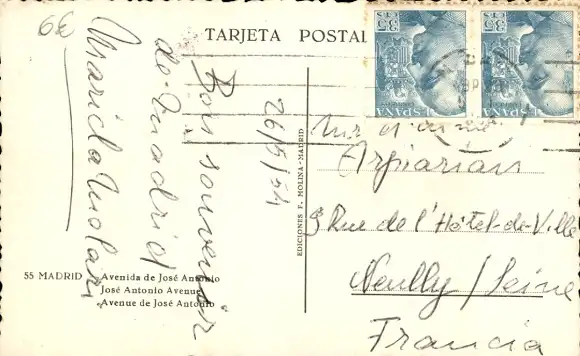 TARJETA POSTAL
35 CTS
ESPAÑA
35 CTS
ESPAÑA
Bon souvenir
de Madrid
26/5/54
Mr et
Arpiarian
9 Rue de l'Hôtel-de-Ville
Neuilly/Seine
Francia
EDICIONES F. MOLINA-MADRID
55 MADRID
Avenida de José Antonio
José Antonio Avenue
Avenue de José Antonio